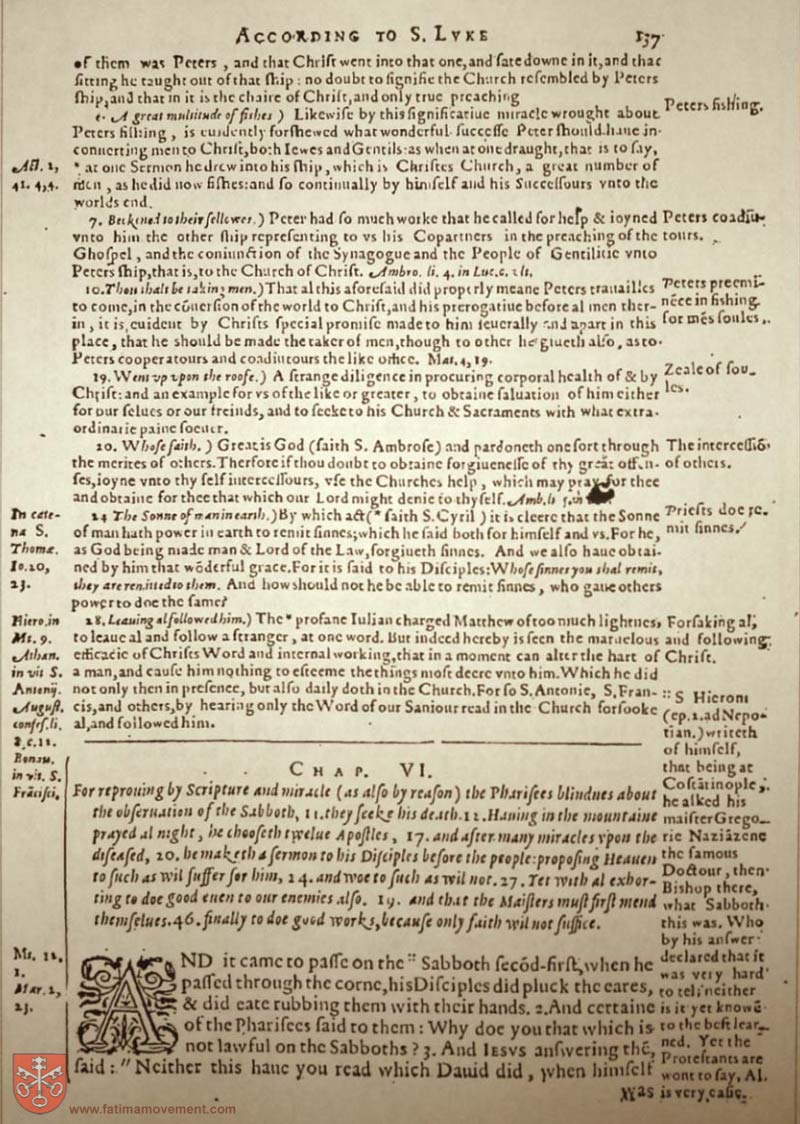 ACCORDING TO S. LVKE 137
of them was Peters , and that Chriſt went into that one, and ſate downe in it, and that
ſitting he taught out of that ſhip : no doubt to ſignifie the Church reſembled by Peters
ſhip, and that in it is the chaire of Chriſt, and only true preaching
A great multitude of fiſhes ) Likewiſe by this ſignificatiue miracle wrought about
Peters fiſhing.
Peters fiſhing , is euidently forſhewed what wonderful ſucceſſe Peter ſhould haue in
conuerting men to Chriſt, both Iewes and Gentils: as when at one draught, that is to ſay,
Act. 2,
41. 4,4.
* at one Sermon he drew into his ſhip, which is Chriſtes Church, a great number of
men , as he did now fiſhes: and ſo continually by himſelf and his Succeſſours vnto the
worlds end.
7. Beckened to their fellowes.) Peter had ſo much worke that he called for help & ioyned
Peters coadiu-
tours.
vnto him the other ſhip repreſenting to vs his Copartners in the preaching of the
Ghoſpel , and the coniunction of the Synagogue and the People of Gentilitie vnto
Peters ſhip, that is, to the Church of Chriſt. Ambro. li. 4. in Luc. c. vlt.
10. Thou ſhalt be taking men.) That al this aforeſaid did properly meane Peters trauailles
Peters preemi-
nēce in fiſhing
for mens ſoules.
to come, in the cōuerſion of the world to Chriſt, and his prerogatiue before al men ther-
in , it is euident by Chriſts ſpecial promiſe made to him ſeuerally and apart in this
place, that he ſhould be made the taker of men, though to other he giueth alſo, as to
Peters cooperatours and coadiutours the like office. Mat. 4, 19.
19. Went vp vpon the roofe.) A ſtrange diligence in procuring corporal health of & by
Zeale of ſou-
les.
Chriſt: and an example for vs of the like or greater, to obtaine ſaluation of him either
for our ſelues or our freinds, and to ſeeke to his Church & Sacraments with what extra-
ordinarie paine ſoeuer.
20. Whoſe faith. ) Great is God (ſaith S. Ambroſe) and pardoneth one ſort through
The interceſſiō
of others.
the merites of others. Therfore if thou doubt to obtaine forgiueneſſe of thy great offen-
ſes, ioyne vnto thy ſelf interceſſours, vſe the Churches help , which may pray for thee
and obtaine for thee that which our Lord might denie to thy ſelf. Amb. li
In cate-
na S.
Thomæ.
Io. 20,
23.
24 The Sonne of man in earth.) By which act (* ſaith S. Cyril ) it is cleere that the Sonne
Prieſts doe re-
mit ſinnes.
of man hath power in earth to remit ſinnes; which he ſaid both for himſelf and vs. For he,
as God being made man & Lord of the Law, forgiueth ſinnes. And we alſo haue obtai-
ned by him that wōderful grace. For it is ſaid to his Diſciples: Whoſe ſinnes you ſhal remit,
they are remitted to them. And how ſhould not he be able to remit ſinnes, who gaue others
power to doe the ſame?
Hiero. in
Mt. 9.
Athan.
in vit S.
Antonij.
Auguſt.
confeſ. li.
8. c. 11.
Bonau.
in vit. S.
Fráciſci.
28. Leauing al followed him.) The * profane Iulian charged Matthew of too much lightnes,
Forſaking al,
and following
Chriſt.
to leaue al and follow a ſtranger, at one word. But indeed hereby is ſeen the maruelous
efficacie of Chriſts Word and internal working, that in a moment can alter the hart of
a man, and cauſe him nothing to eſteeme the things moſt deere vnto him. Which he did
not only then in preſence, but alſo daily doth in the Church. For ſo S. Antonie, S. Fran-
cis, and others, by hearing only the Word of our Sauiour read in the Church forſooke
al, and followed him.
CHAP. VI.
For reprouing by Scripture and miracle (as alſo by reaſon) the Phariſees blindnes about
the obſeruation of the Sabboth, 11. they ſeeke his death. 12. Hauing in the mountaine
prayed al night, he chooſeth twelue Apoſtles, 17. and after many miracles vpon the
diſeaſed, 20. he maketh a ſermon to his Diſciples before the people: propoſing Heauen
to ſuch as wil ſuffer for him, 24. and woe to ſuch as wil not. 27. Yet with al exhor-
ting to doe good euen to our enemies alſo. 39. and that the Maiſters muſt firſt mend
themſelues. 46. finally to doe good works, becauſe only faith wil not ſuffice.
Mt. 12,
1.
Mar. 2,
23.
AND it came to paſſe on the :: Sabboth ſecōd-firſt, when he
paſſed through the corne, his Diſciples did pluck the eares,
& did eate rubbing them with their hands. 2. And certaine
of the Phariſees ſaid to them : Why doe you that which is
not lawful on the Sabboths ? 3. And IESVS anſwering thē,
ſaid : " Neither this haue you read which Dauid did , when himſelf
was
:: S Hierom
(ep. 2. ad Nepo-
tian.) writeth
of himſelf,
that being at
Cōſtātinople,
he aſked his
maiſter Grego-
rie Naziāzene
the famous
Doctour, then
Biſhop there,
what Sabboth
this was. Who
by his anſwer
declared that it
was very hard
to tel, neither
is it yet knowē
to the beſt lear-
ned. Yet the
Proteſtants are
wont to ſay, Al
is very eaſie.
www.fatimamovement.com